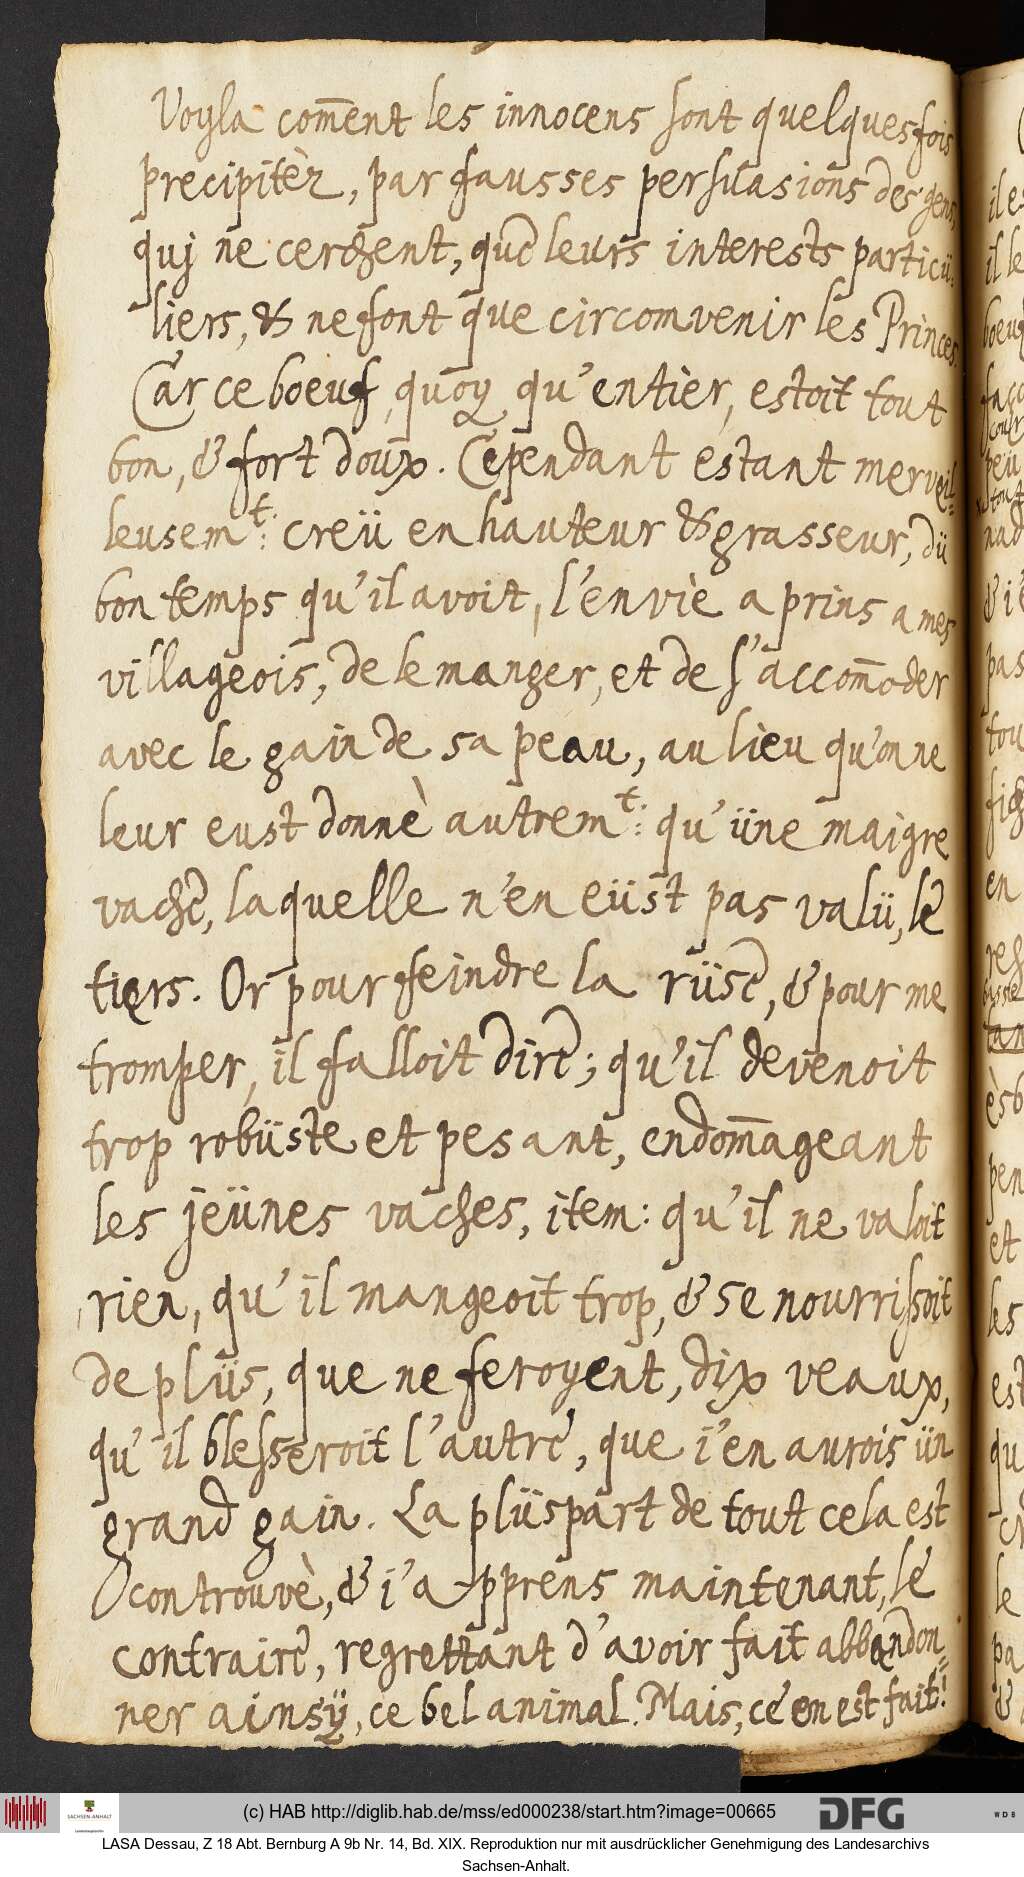 Voyla com̄ent les innocens sont quelquesfois
precipitèz, par fausses persuasions des gens,
quj ne cerchent, que leurs interests particü-
liers, & ne font que circomvenir les Princes.
Car ce boeuf, quoy qu'entier, estoit tout
bon, & fort doux. Cependant estant merveil=
leusem.t: creü en hauteur & grasseur, dü
bon temps qu'il avoit, l'envie a prins a mes
villageois, de le manger, et de s'accom̄oder
avec le gain de sa peau, au lieu qu'on ne
leur eust donnè autrem.t: qu'üne maigre
vache, laquelle n'en eüst pas valü, le
tiers. Or pour feindre la rüse, & pour me
tromper, il falloit dire; qu'il devenoit
trop robüste et pesant, endom̄ageant
les jeünes vaches, item: qu'il ne valoit
rien, qu'il mangeoit trop, & se nourrissoit
de plüs, que ne feroyent, dix veaux,
qu'il blesseroit l'autre, que i'en aurois ün
grand gain. La plüspart de tout cela est
controuvè, & i'apprens maintenant, le
contraire, regrettant d'avoir fait abbandon=
ner ainsÿ, ce bel animal. Mais, c'en est fait!
(c) HAB http://diglib.hab.de/mss/ed000238/start.htm?image=00665
DFG
WDB
SACHSEN-ANHALT
LASA Dessau, Z 18 Abt. Bernburg A 9b Nr. 14, Bd. XIX. Reproduktion nur mit ausdrücklicher Genehmigung des Landesarchivs
Sachsen-Anhalt.